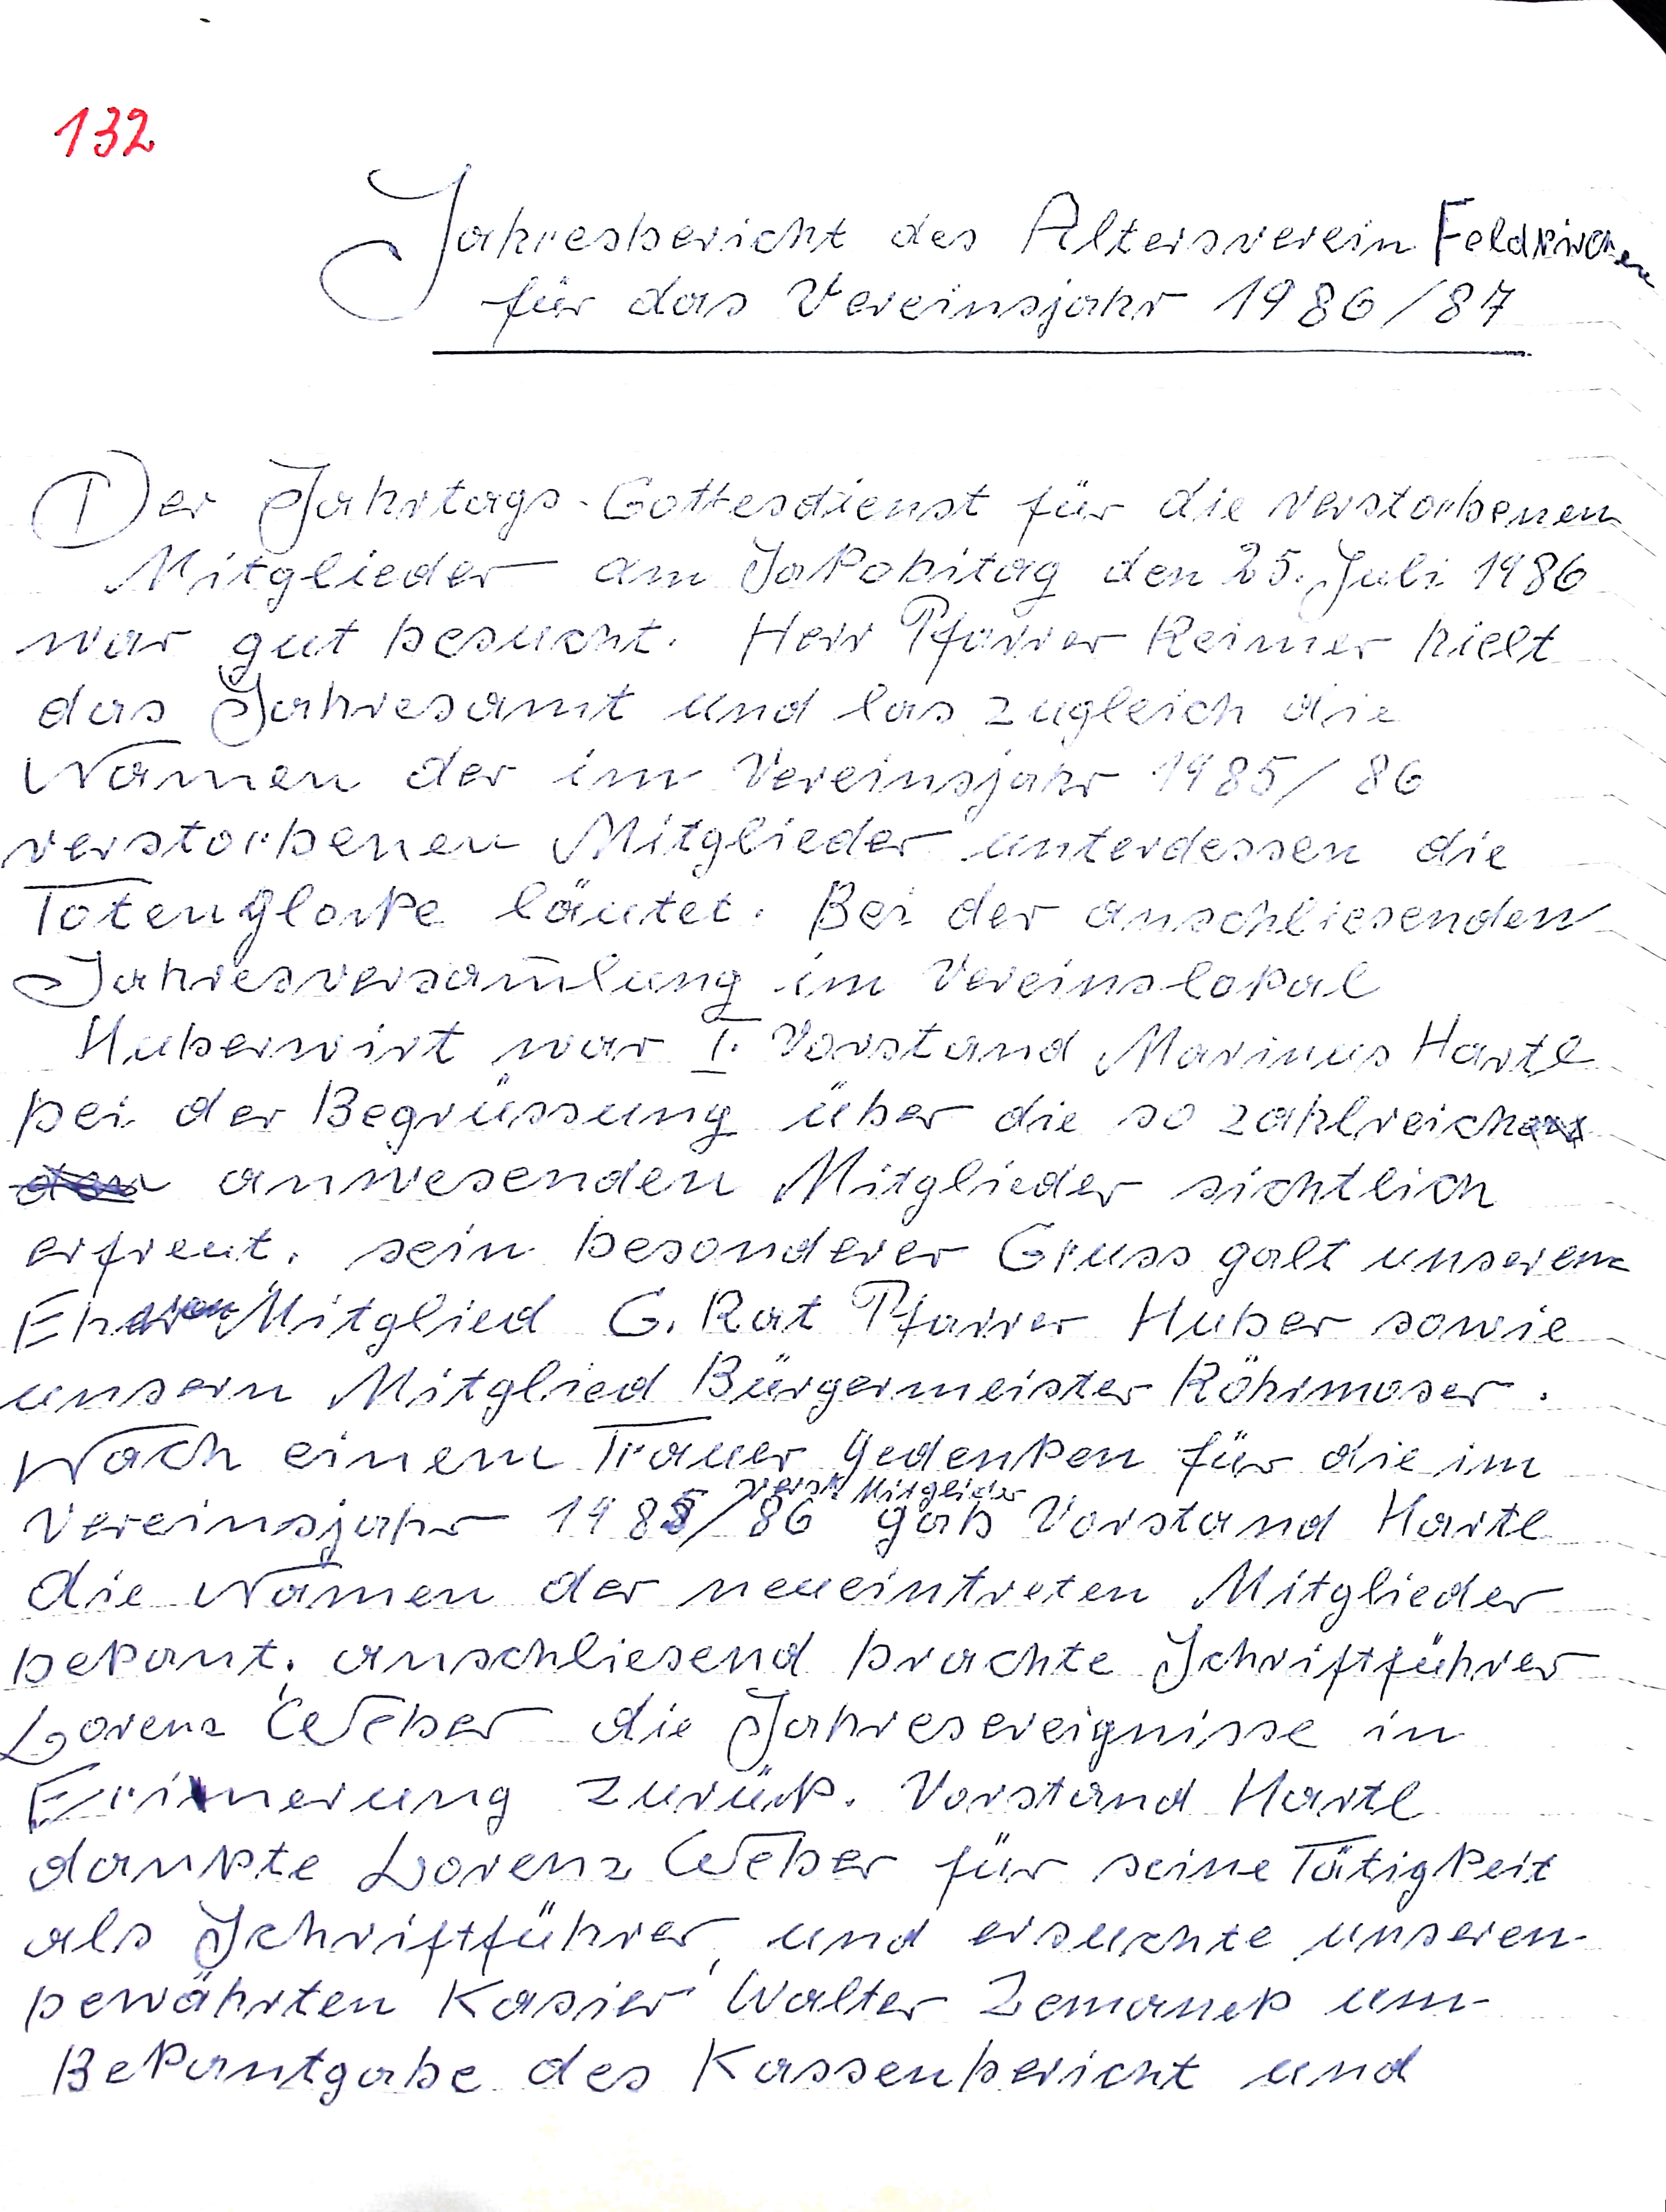 132
Jahresbericht des Altersverein Feldkirchen
für das Vereinsjahr 1986/87
Der Jahrtags-Gottesdienst für die verstorbenen
Mitglieder am Jakobitag den 25. Juli 1986
war gut besucht. Herr Pfarrer Reimer hielt
das Jahresamt und las zugleich die
Namen der im Vereinsjahr 1985/86
verstorbenen Mitglieder unterdessen die
Totenglocke läutet. Bei der anschliesenden
Jahresversam̄lung im Vereinslokal
Huberwirt war I. Vorstand Marinus Hartl
bei der Begrüssung über die so zahlreich
anwesenden Mitglieder sichtlich
erfreut. sein besonderer Gruss galt unserem
Ehren Mitglied G. Rat Pfarrer Huber sowie
unsern Mitglied Bürgermeister Röhrmoser.
Nach einem Trauer gedenken für die im
verst. Mitglieder
Vereinsjahr 1985/86 gab Vorstand Hartl
die Namen der neueintreten Mitglieder
bekant, anschliesend brachte Schriftführer
Lorenz Weber die Jahresereignisse in
Erinnerung zurück. Vorstand Hartl
dankte Lorenz Weber für seine Tätigkeit
als Schriftführer, und ersuchte unseren
bewährten Kasier Walter Zemanek um
Bekantgabe des Kassenbericht und